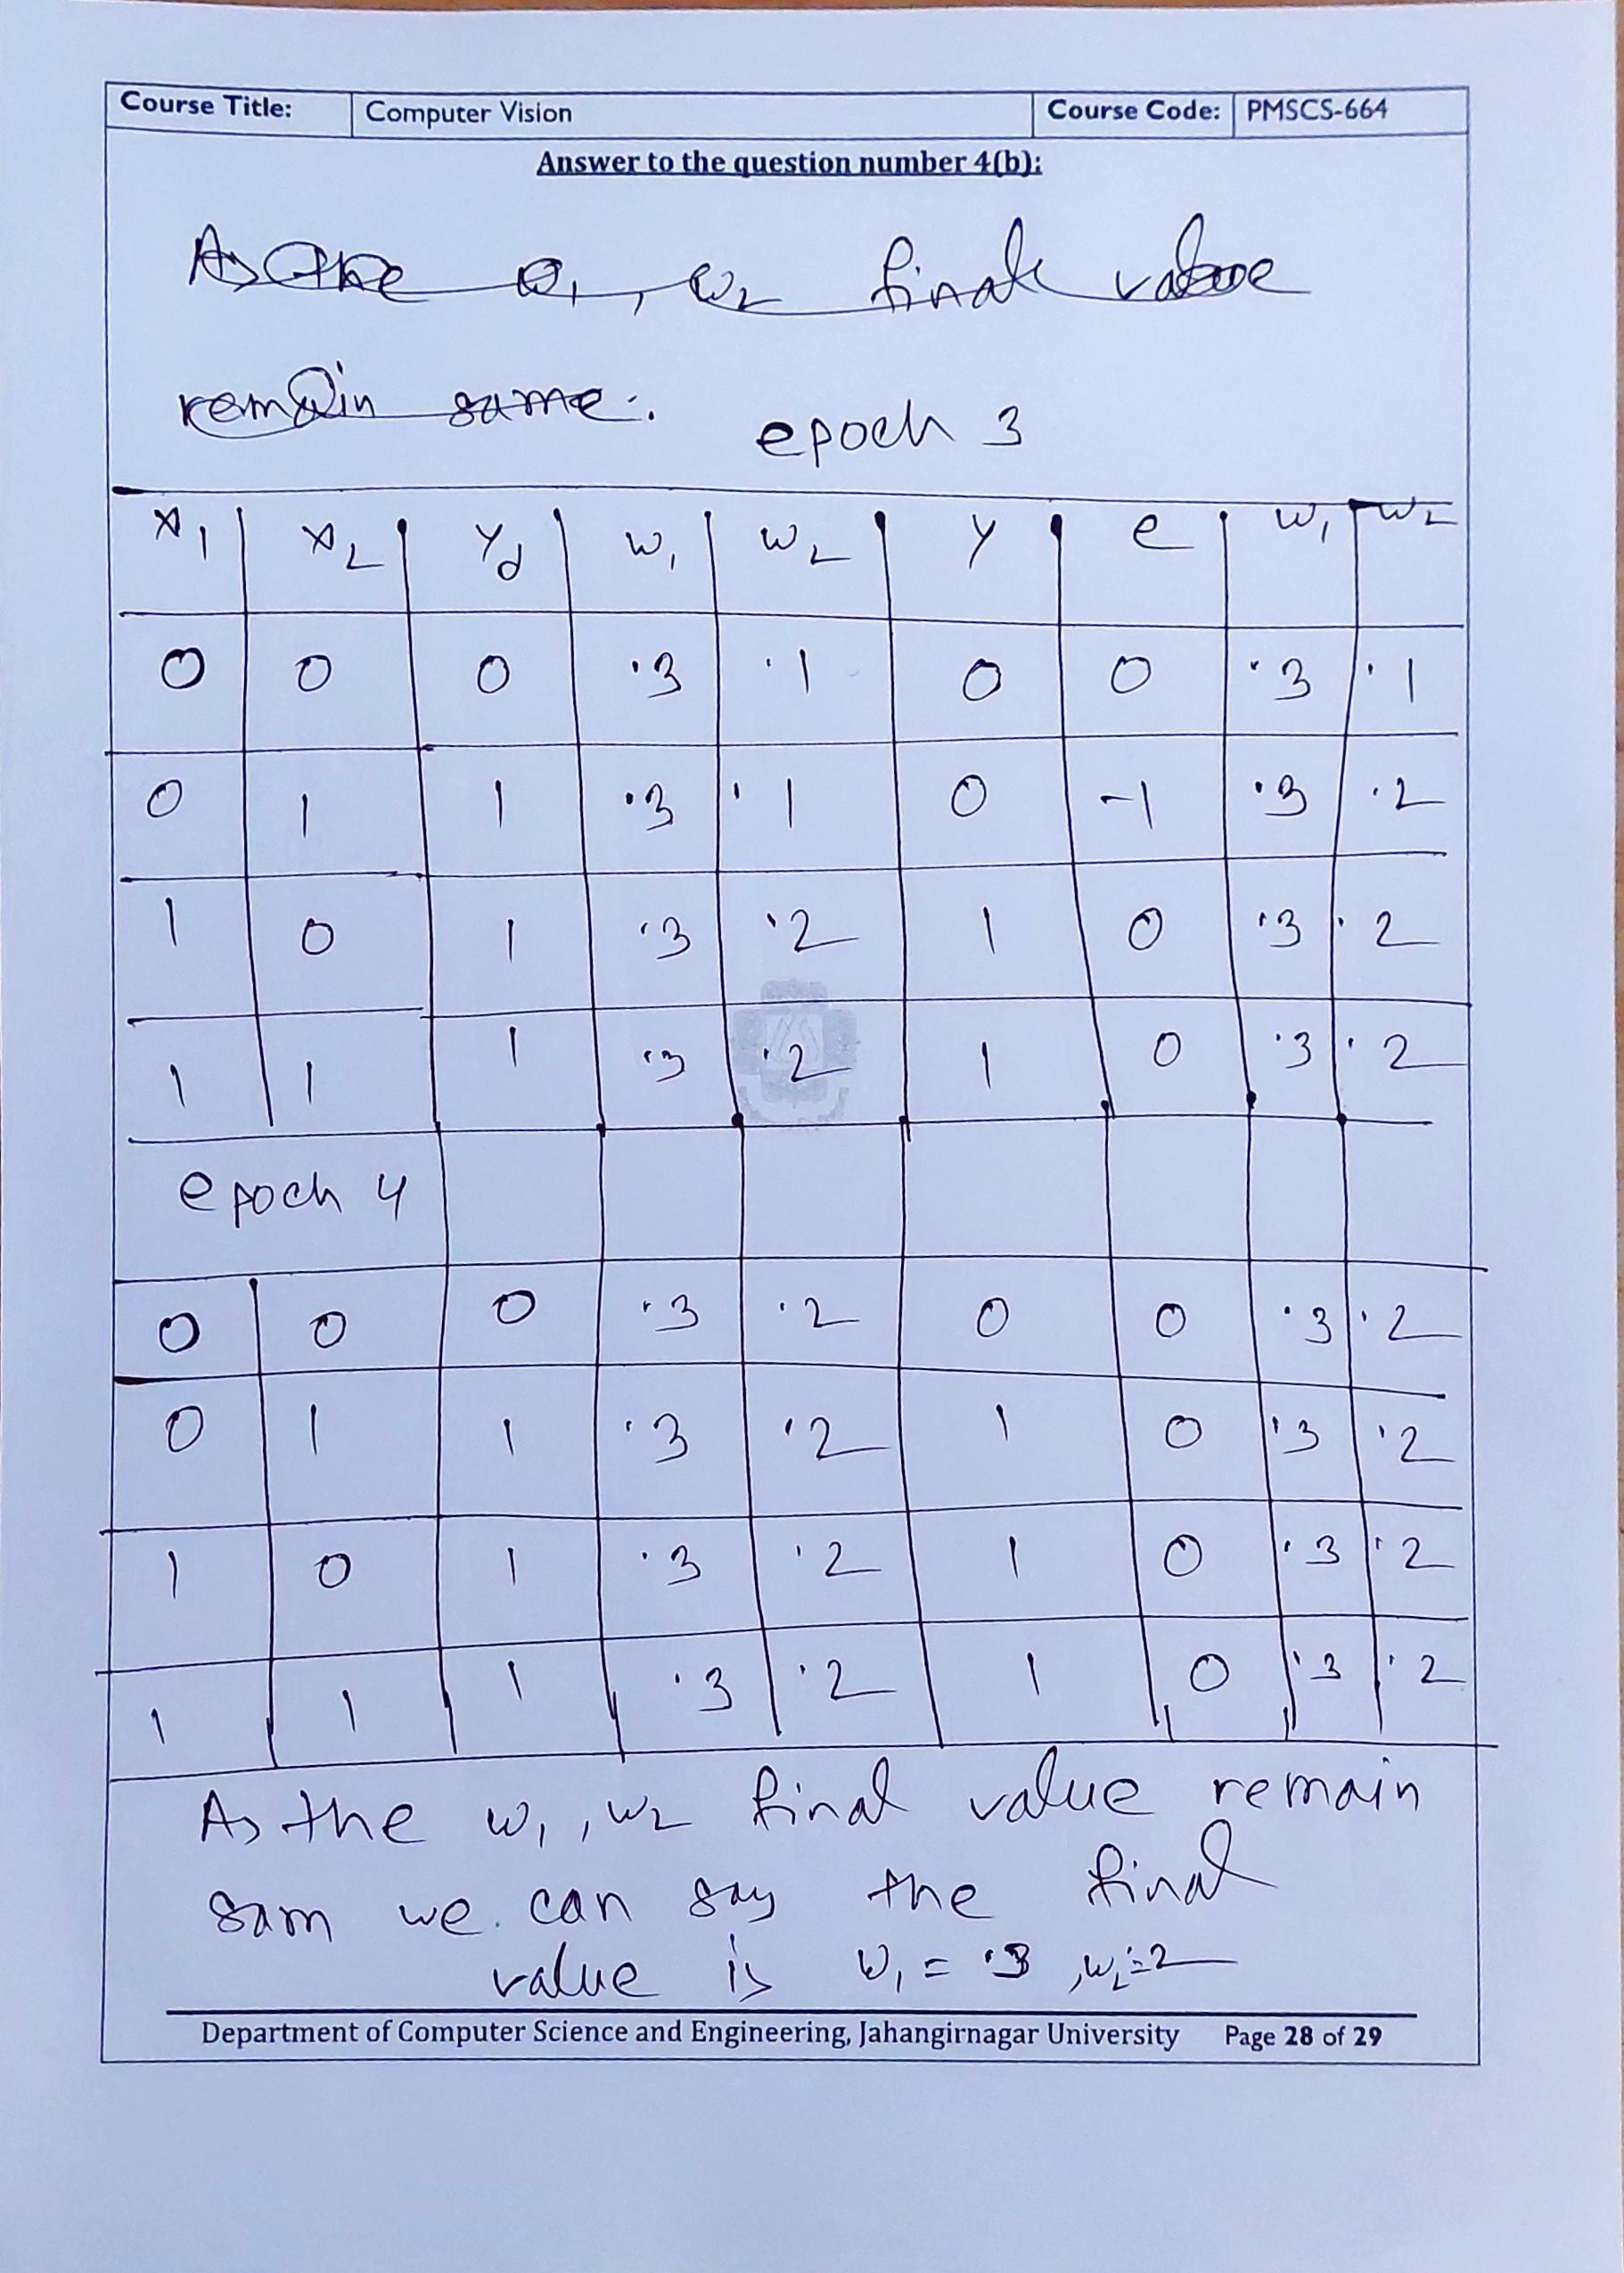 Course Title: Computer Vision Course Code: PMSCS-664
Answer to the question number 4(b):
As the w1, w2 final value
remain same.
epoch 3
x1 x2 yd w1 w2 y e w1 w2
0 0 0 .3 .1 0 0 .3 .1
0 1 1 .3 .1 0 -1 .3 .2
1 0 1 .3 .2 1 0 .3 .2
1 1 1 .3 .2 1 0 .3 .2
epoch 4
0 0 0 .3 .2 0 0 .3 .2
0 1 1 .3 .2 1 0 .3 .2
1 0 1 .3 .2 1 0 .3 .2
1 1 1 .3 .2 1 0 .3 .2
As the w1, w2 final value remain
sam we can say the final
value is w1 = .3, w2 = .2
Department of Computer Science and Engineering, Jahangirnagar University Page 28 of 29